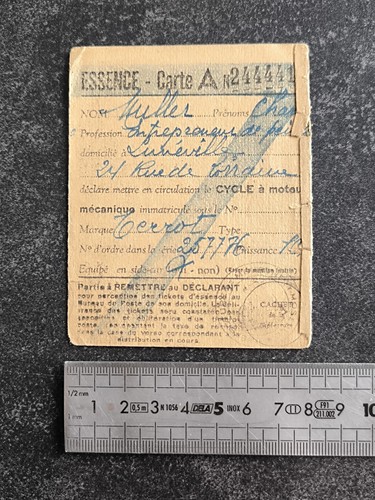 ESSENCE - Carte A N 244441
NOM Muller Prénoms Cha
Profession Entrepreneur de
domicilié à Lunéville
24 Rue de Lorraine
déclare mettre en circulation le CYCLE à moteur
mécanique immatriculé sous le N°
Marque Terrot Type
N° d'ordre dans la série 25777 Puissance
Équipé en side-car (oui - non) (Rayer la mention inutile)
Partie à REMETTRE au DÉCLARANT
pour perception des tickets d'essence au
Bureau de Poste de son domicile. La déli-
vrance des tickets sera constatée par
apposition et oblitération d'un timbre-
poste représentant la taxe de
dans la case du verso correspondant à la
distribution en cours.
CACHET
1/2 mm
1 2 0,5 m 3 N 1056 4 DELA 5 INOX 6 7 8 F91 211.002 9 10
1 mm